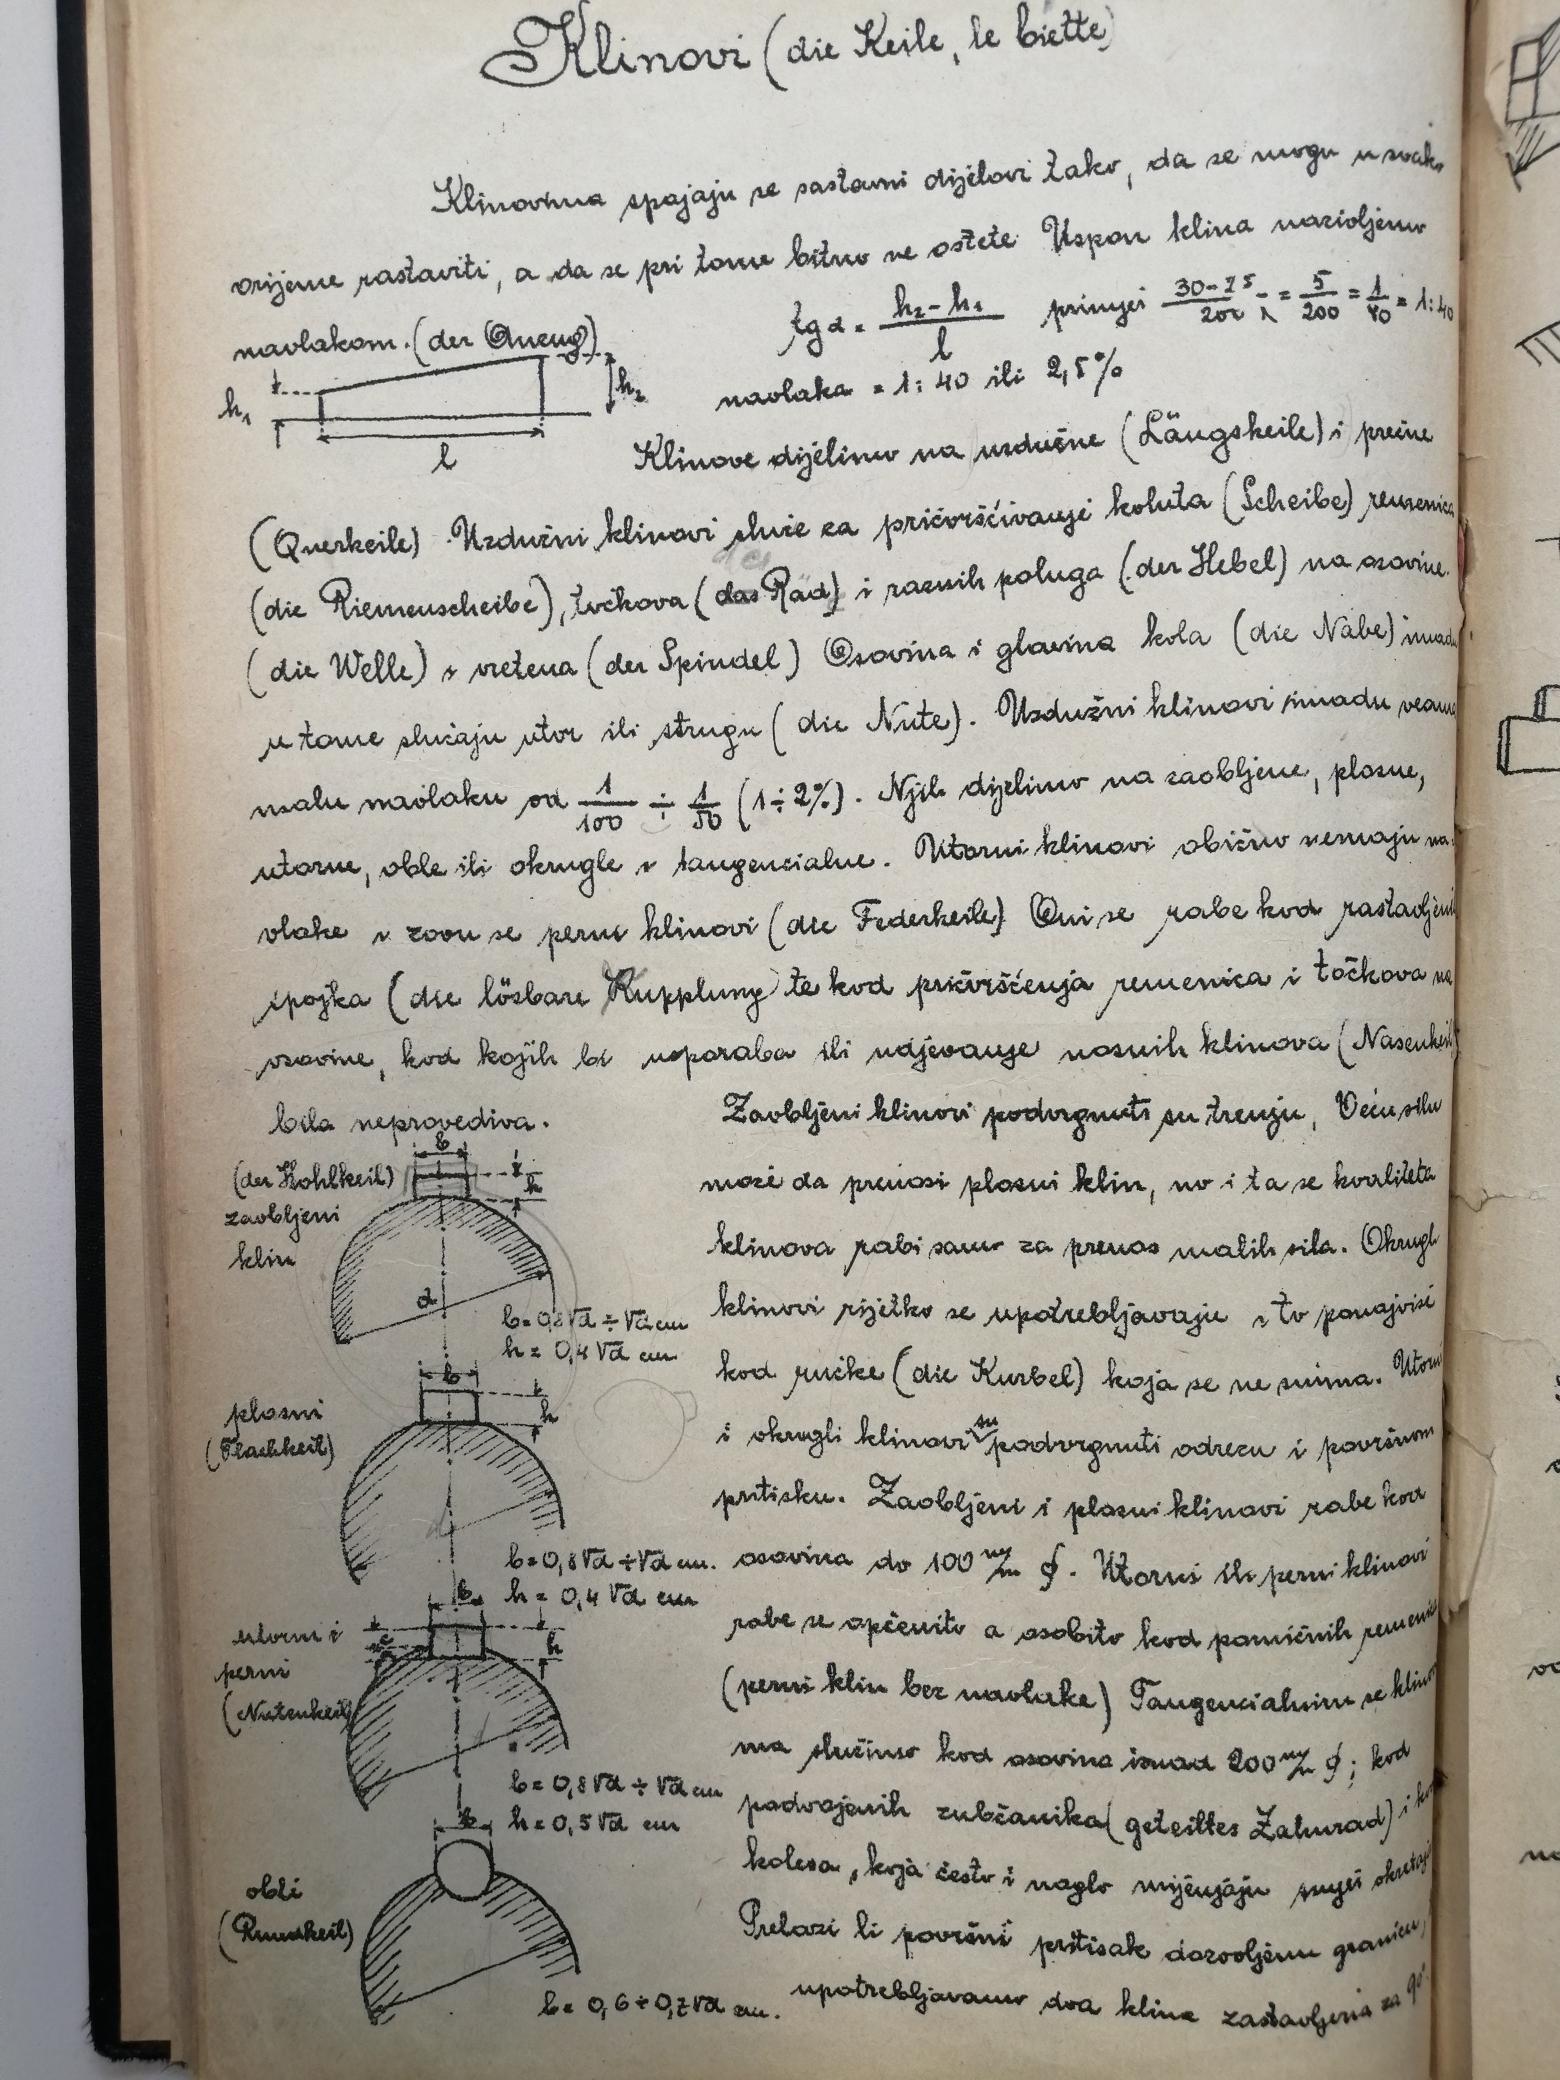 Klinovi (die Keile, le biette)
Klinovima spajaju se sastavni dijelovi tako, da se mogu u svako
vrijeme rastaviti, a da se pri tome bitno ne oštete. Uspon klina nazivljemo
navlakom. (der Anzug)
tg α = (h₂ - h₁) / l primjer (30-25) / 200 = 5/200 = 1/40 = 1:40
h₁ h₂ l
navlaka = 1:40 ili 2,5%
Klinove dijelimo na uzdužne (Längskeile) i prečne
(Querkeile). Uzdužni klinovi služe za pričvršćivanje koluta (Scheibe) remenica
(die Riemenscheibe), točkova (das Rad) i raznih poluga (der Hebel) na osovine
(die Welle) i vretena (der Spindel) Osovina i glavina kola (die Nabe) imadu
u tome slučaju utor ili strugu (die Nute). Uzdužni klinovi imadu veoma
malu navlaku od 1/100 ÷ 1/50 (1÷2%). Njih dijelimo na zaobljene, plosne,
utorne, oble ili okrugle i tangencialne. Utorni klinovi obično nemaju na-
vlake i zovu se perni klinovi (die Federkeile) Oni se rabe kod rastavljenih
spojka (die lösbare Kupplung) te kod pričvršćenja remenica i točkova na
osovine, kod kojih bi uporaba ili udjevanje nosnih klinova (Nasenkeil)
bila neprovediva.
Zaobljeni klinovi podvrgnuti su trenju, Veću silu
može da prenosi plosni klin, no i ta se kvaliteta
klinova rabi samo za prenos malih sila. Okrugli
klinovi rijetko se upotrebljavaju i to ponajviše
kod ručke (die Kurbel) koja se ne snima. Utorni
i okrugli klinovi su podvrgnuti odrezu i površnom
pritisku. Zaobljeni i plosni klinovi rabe kod
osovina do 100 m/m ∅. Utorni ili perni klinovi
rabe se općenito a osobito kod pomičnih remenica
(perni klin bez navlake) Tangencialnim se klinov-
ma služimo kod osovina iznad 200 m/m ∅; kod
podvojenih zubčanika (geteiltes Zahnrad) i kod
kolesa, koja često i naglo mijenjaju smjer okretaja
Prelazi li površni pritisak dozvoljenu granicu,
upotrebljavamo dva klina zastavljena za 90°.
(der Hohlkeil)
zaobljeni
klin
b h d
b = 0,8√d ÷ √d cm
h = 0,4√d cm
plosni
(Flachkeil)
b h d
b = 0,8√d ÷ √d cm.
h = 0,4√d cm
utorni i
perni
(Nutenkeil)
b h d
b = 0,8√d ÷ √d cm
h = 0,5√d cm
obli
(Rundkeil)
b d
b = 0,6 ÷ 0,7√d cm.